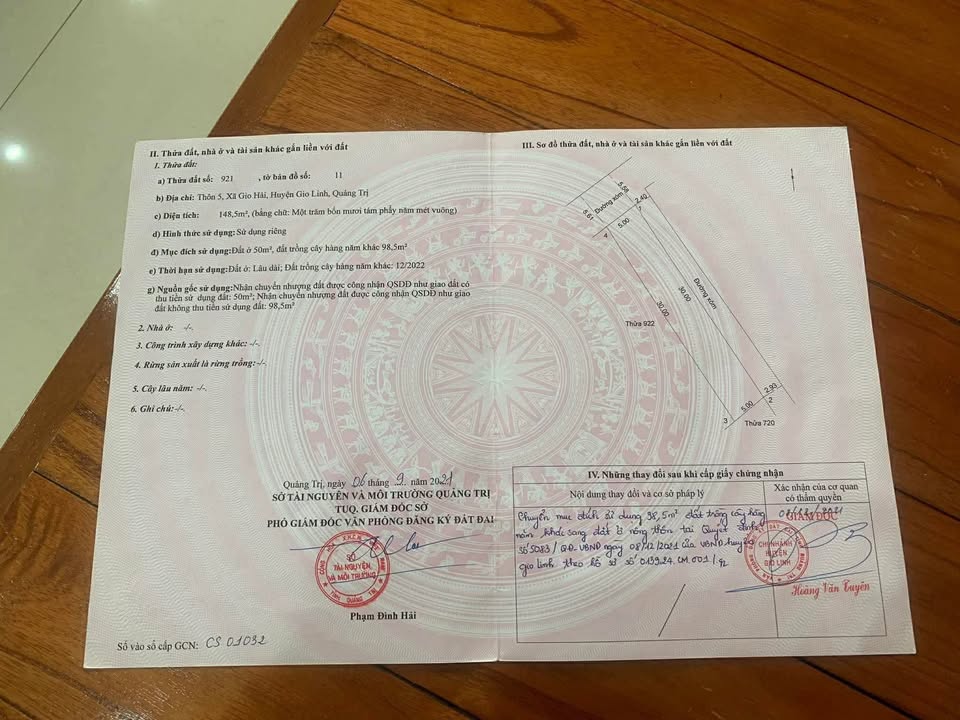 II. Thửa đất, nhà ở và tài sản khác gắn liền với đất
1. Thửa đất:
a) Thửa đất số: 921 , tờ bản đồ số: 11
b) Địa chỉ: Thôn 5, Xã Gio Hải, Huyện Gio Linh, Quảng Trị
c) Diện tích: 148,5m², (bằng chữ: Một trăm bốn mươi tám phẩy năm mét vuông)
d) Hình thức sử dụng: Sử dụng riêng
đ) Mục đích sử dụng:Đất ở 50m², đất trồng cây hàng năm khác 98,5m²
e) Thời hạn sử dụng:Đất ở: Lâu dài; Đất trồng cây hàng năm khác: 12/2022
g) Nguồn gốc sử dụng:Nhận chuyển nhượng đất được công nhận QSDĐ như giao đất có
thu tiền sử dụng đất: 50m²; Nhận chuyển nhượng đất được công nhận QSDĐ như giao
đất không thu tiền sử dụng đất: 98,5m²
2. Nhà ở: -/-
3. Công trình xây dựng khác:-/-
4. Rừng sản xuất là rừng trồng:-/-
5. Cây lâu năm: -/-
6. Ghi chú:-/-
Quảng Trị, ngày 06 tháng 9 năm 2021
SỞ TÀI NGUYÊN VÀ MÔI TRƯỜNG QUẢNG TRỊ
TUQ. GIÁM ĐỐC SỞ
PHÓ GIÁM ĐỐC VĂN PHÒNG ĐĂNG KÝ ĐẤT ĐAI
SỞ
TÀI NGUYÊN
VÀ MÔI TRƯỜNG
TỈNH QUẢNG TRỊ
Phạm Đình Hải
Số vào sổ cấp GCN: CS 01032
III. Sơ đồ thửa đất, nhà ở và tài sản khác gắn liền với đất
5.58
Đường xóm
6.61
2.40
1
5.00
4
Đường xóm
30.00
30.00
Thửa 922
2.90
2
5.00
3
Thửa 720
IV. Những thay đổi sau khi cấp giấy chứng nhận
Nội dung thay đổi và cơ sở pháp lý
Xác nhận của cơ quan
có thẩm quyền
Chuyển mục đích sử dụng 98,5m² đất trồng cây hàng
năm khác sang đất ở nông thôn tại Quyết định
số 5083/QĐ.UBND ngày 08/12/2021 của UBND huyện
Gio Linh theo hồ sơ số 013924.CM.001/
GIÁM ĐỐC
CHI NHÁNH
HUYỆN
GIO LINH
Hoàng Văn Tuyên